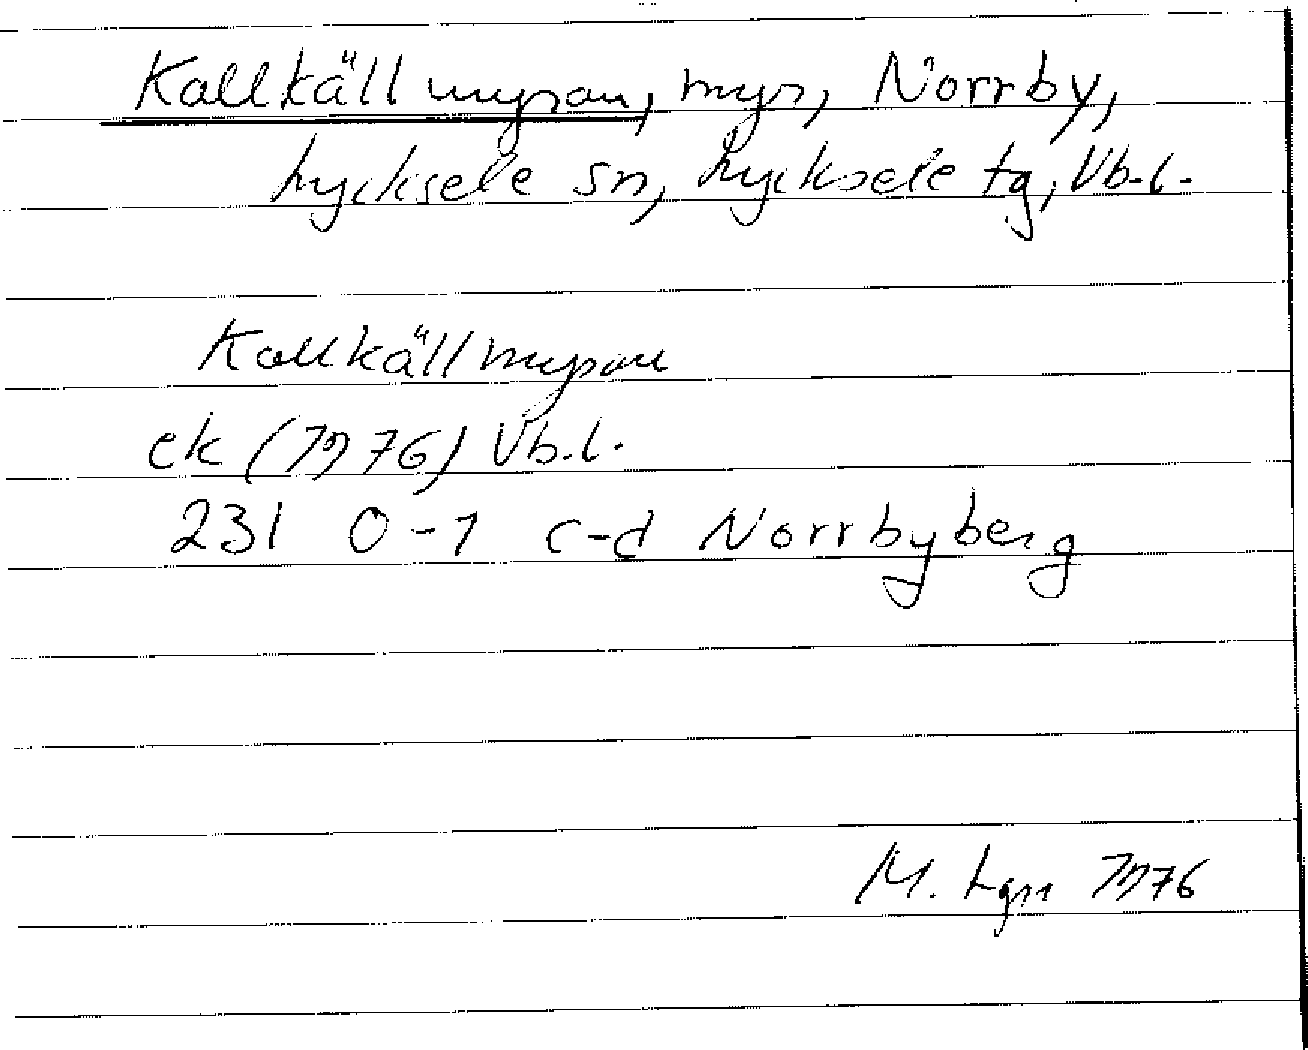 Kallkällmyran, myr, Norrby,
Lycksele sn, Lycksele tg, Vb.l.
Kallkällmyran
ek (1976) Vb.l.
231 0-1 c-d Norrbyberg
M. Lgn 1976